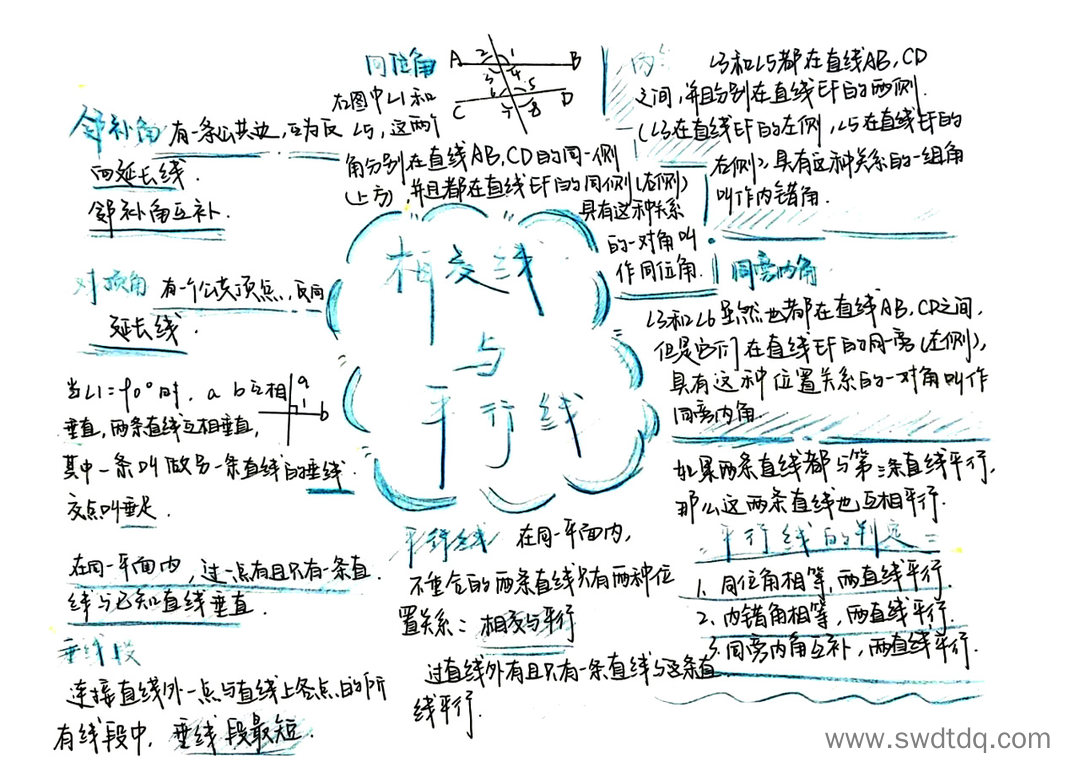 相交线
与
平行线
邻补角 有一条公共边,互为反
向延长线.
邻补角互补.
对顶角 有一个公共顶点,反向
延长线.
当∠1=90°时,a b互相
垂直,两条直线互相垂直,
其中一条叫做另一条直线的垂线.
交点叫垂足.
a
1
b
在同一平面内,过一点有且只有一条直
线与已知直线垂直.
垂线段
连接直线外一点与直线上各点的所
有线段中,垂线段最短.
同位角
A 2 1 B
3 4
6 5
C 7 8 D
右图中∠1和
∠5,这两个
角分别在直线AB,CD的同一侧
(上方),并且都在直线EF的同侧(右侧)
具有这种关系
的一对角叫
作同位角.
内
∠3和∠5都在直线AB,CD
之间,并且分别在直线EF的两侧.
(∠3在直线EF的左侧,∠5在直线EF的
右侧),具有这种关系的一组角
叫作内错角.
同旁内角
∠3和∠6虽然也都在直线AB,CD之间,
但是它们在直线EF的同一旁(左侧),
具有这种位置关系的一对角叫作
同旁内角.
平行线 在同一平面内,
不重合的两条直线只有两种位
置关系:相交与平行
过直线外有且只有一条直线与这条直
线平行.
如果两条直线都与第三条直线平行,
那么这两条直线也互相平行.
平行线的判定:
1、同位角相等,两直线平行.
2、内错角相等,两直线平行.
3.同旁内角互补,两直线平行.
www.swdtdq.com